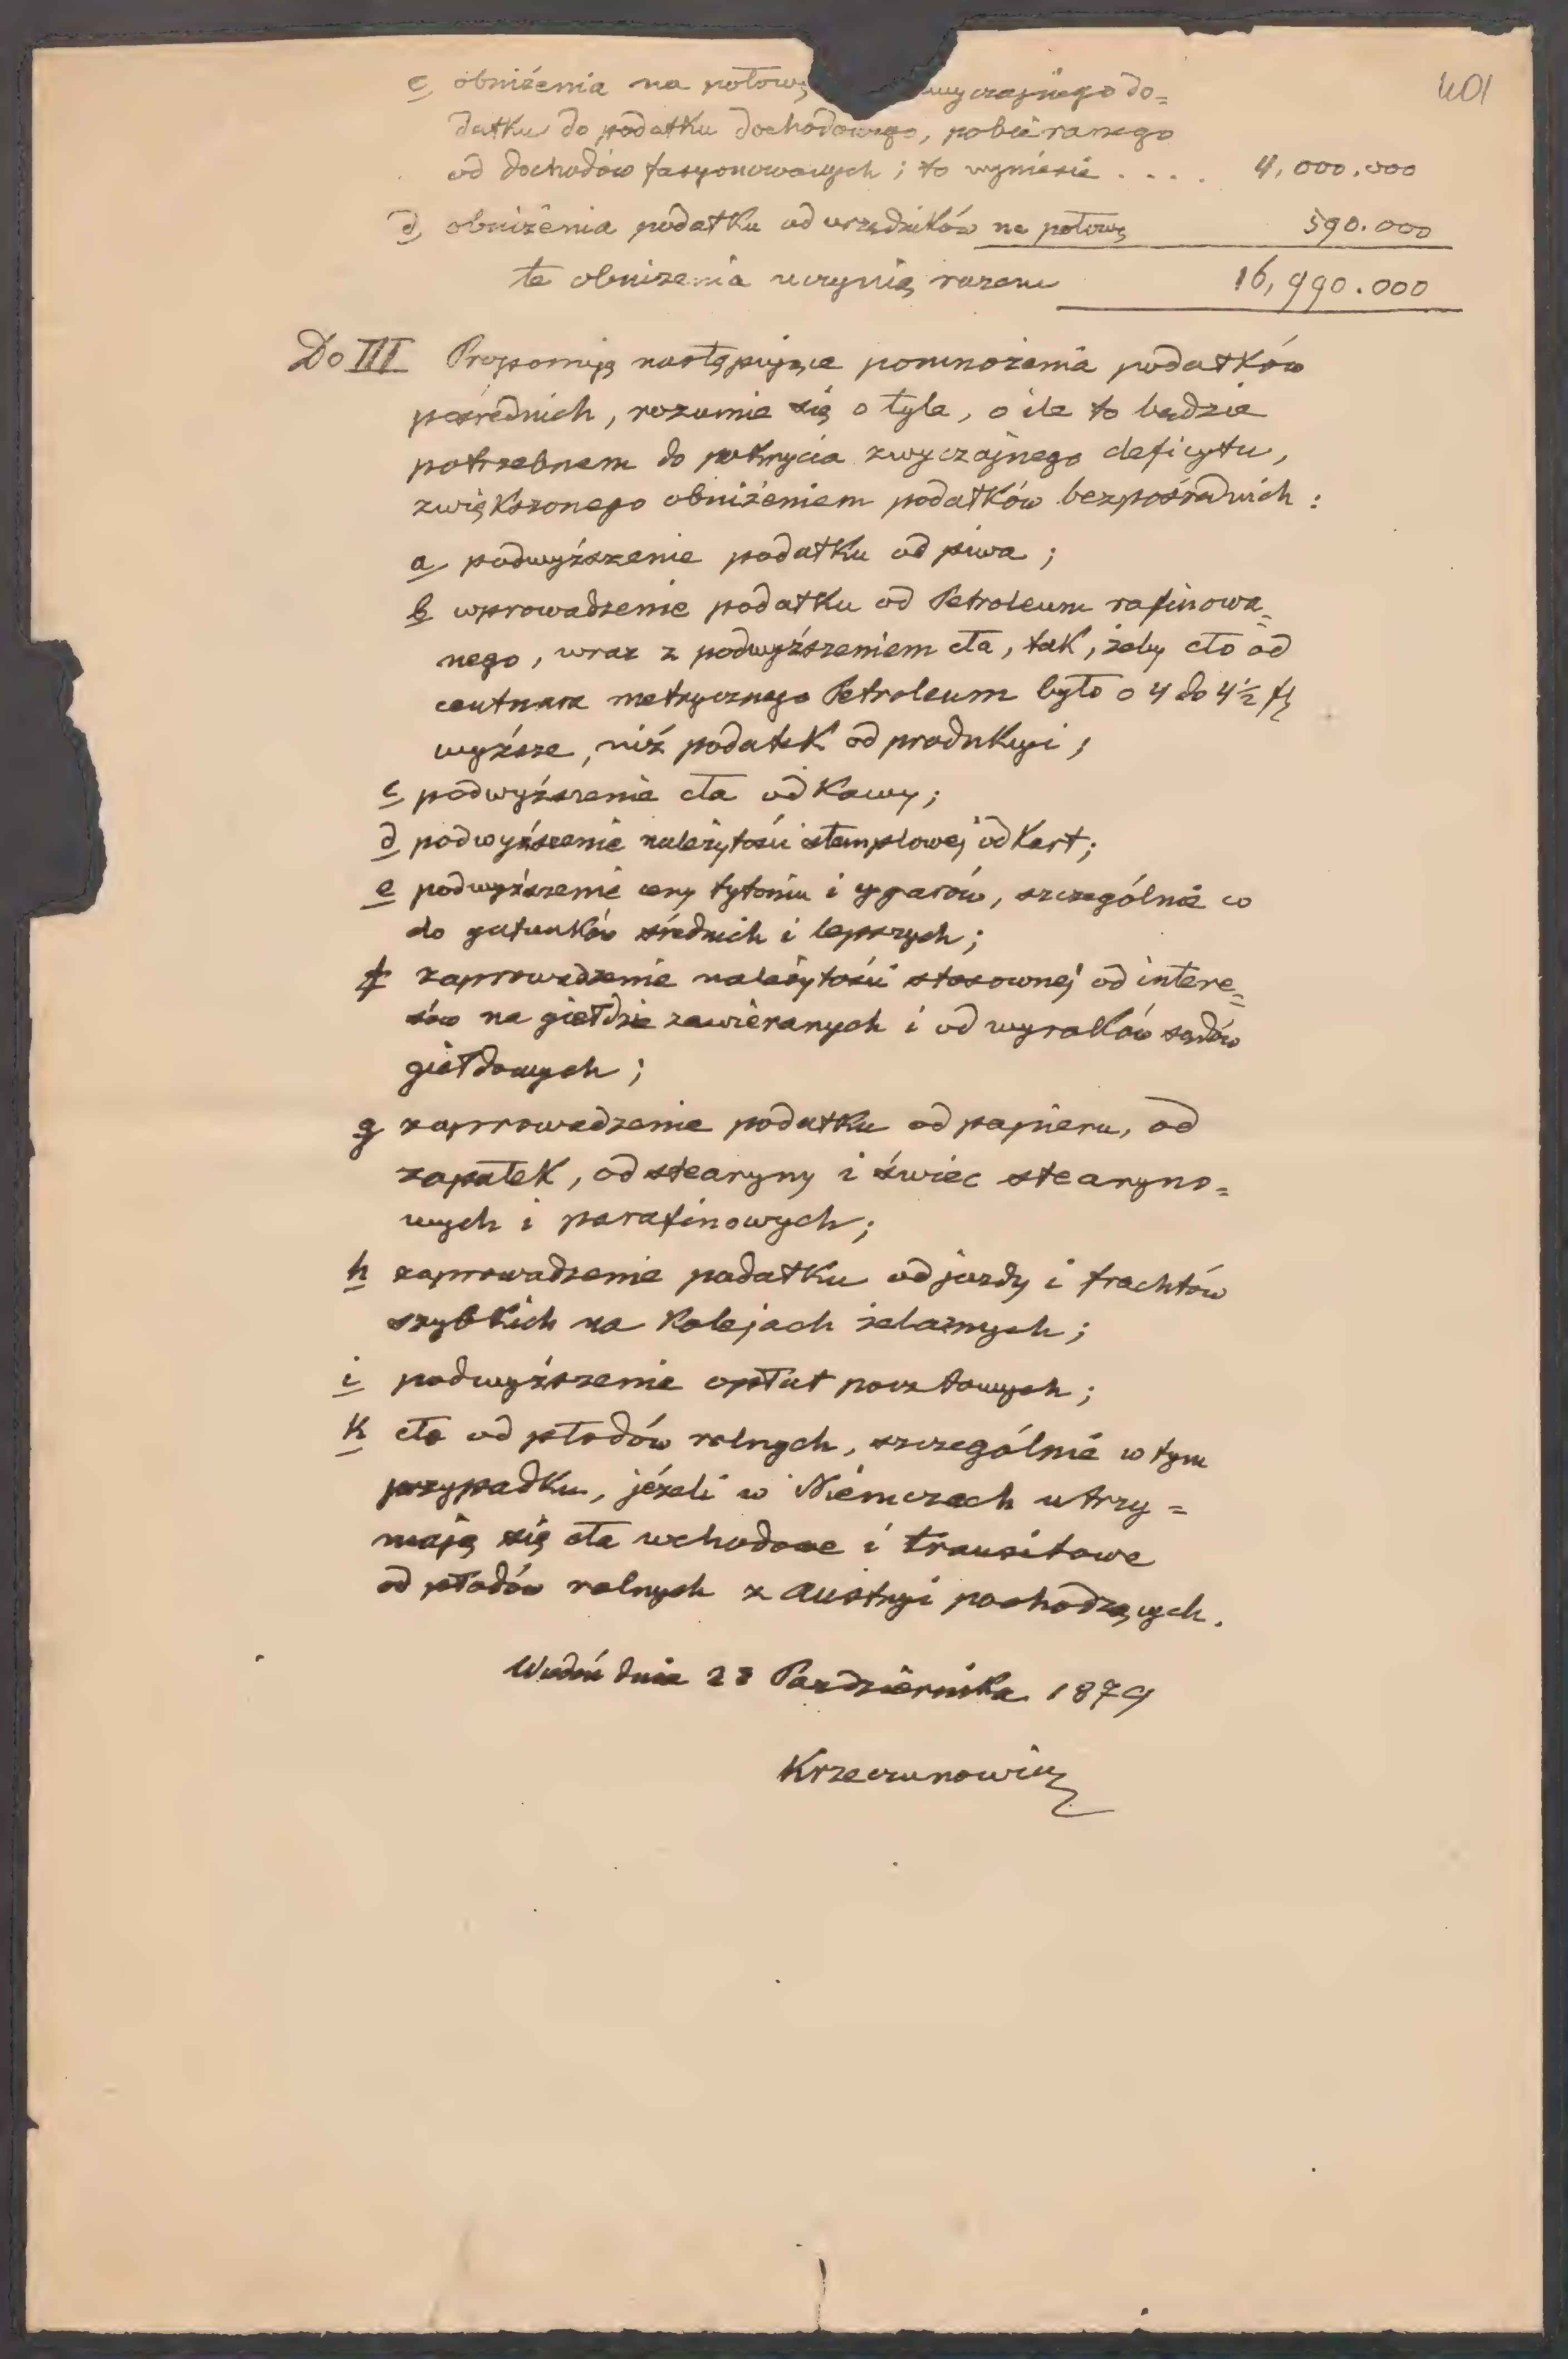 401
c, obniżenia na połowę wyczajnego do=
datku do podatku dochodowego, pobieranego
od dochodów fasyonowanych; to wyniesie . . . . 4,000.000
d, obniżenia podatku od urzędników na połowę 590.000
te obniżenia uczynią razem 16,990.000
Do III Proponuję następujące pomnożenia podatków
pośrednich, rozumie się o tyle, o ile to będzie
potrzebnem do pokrycia zwyczajnego deficytu,
zwiększonego obniżeniem podatków bezpośrednich:
a, podwyższenie podatku od piwa;
b wprowadzenie podatku od Petroleum rafinowa=
nego, wraz z podwyższeniem cła, tak, żeby cło od
centnara metrycznego Petroleum było o 4 do 4½ fl
wyższe, niż podatek od produkcyi;
c podwyższenie cła od Kawy;
d podwyższenie należytości stemplowej od Kart;
e podwyższenie ceny tytoniu i cygarów, szczególnie co
do gatunków średnich i lepszych;
f zaprowadzenie należytości stosownej od intere=
sów na giełdzie zawieranych i od wyroków sądów
giełdowych;
g zaprowadzenie podatku od papieru, od
zapałek, od stearyny i świec stearyno=
wych i parafinowych;
h zaprowadzenie podatku od jazdy i frachtów
szybkich na Kolejach żelaznych;
i podwyższenie opłat pocztowych;
k cło od płodów rolnych, szczególnie w tym
przypadku, jeżeli w Niemczech utrzy=
mają się cła wchodowe i transitowe
od płodów rolnych z Austryi pochodzących.
Wiedeń dnia 28 Października 1879
Krzeczunowicz